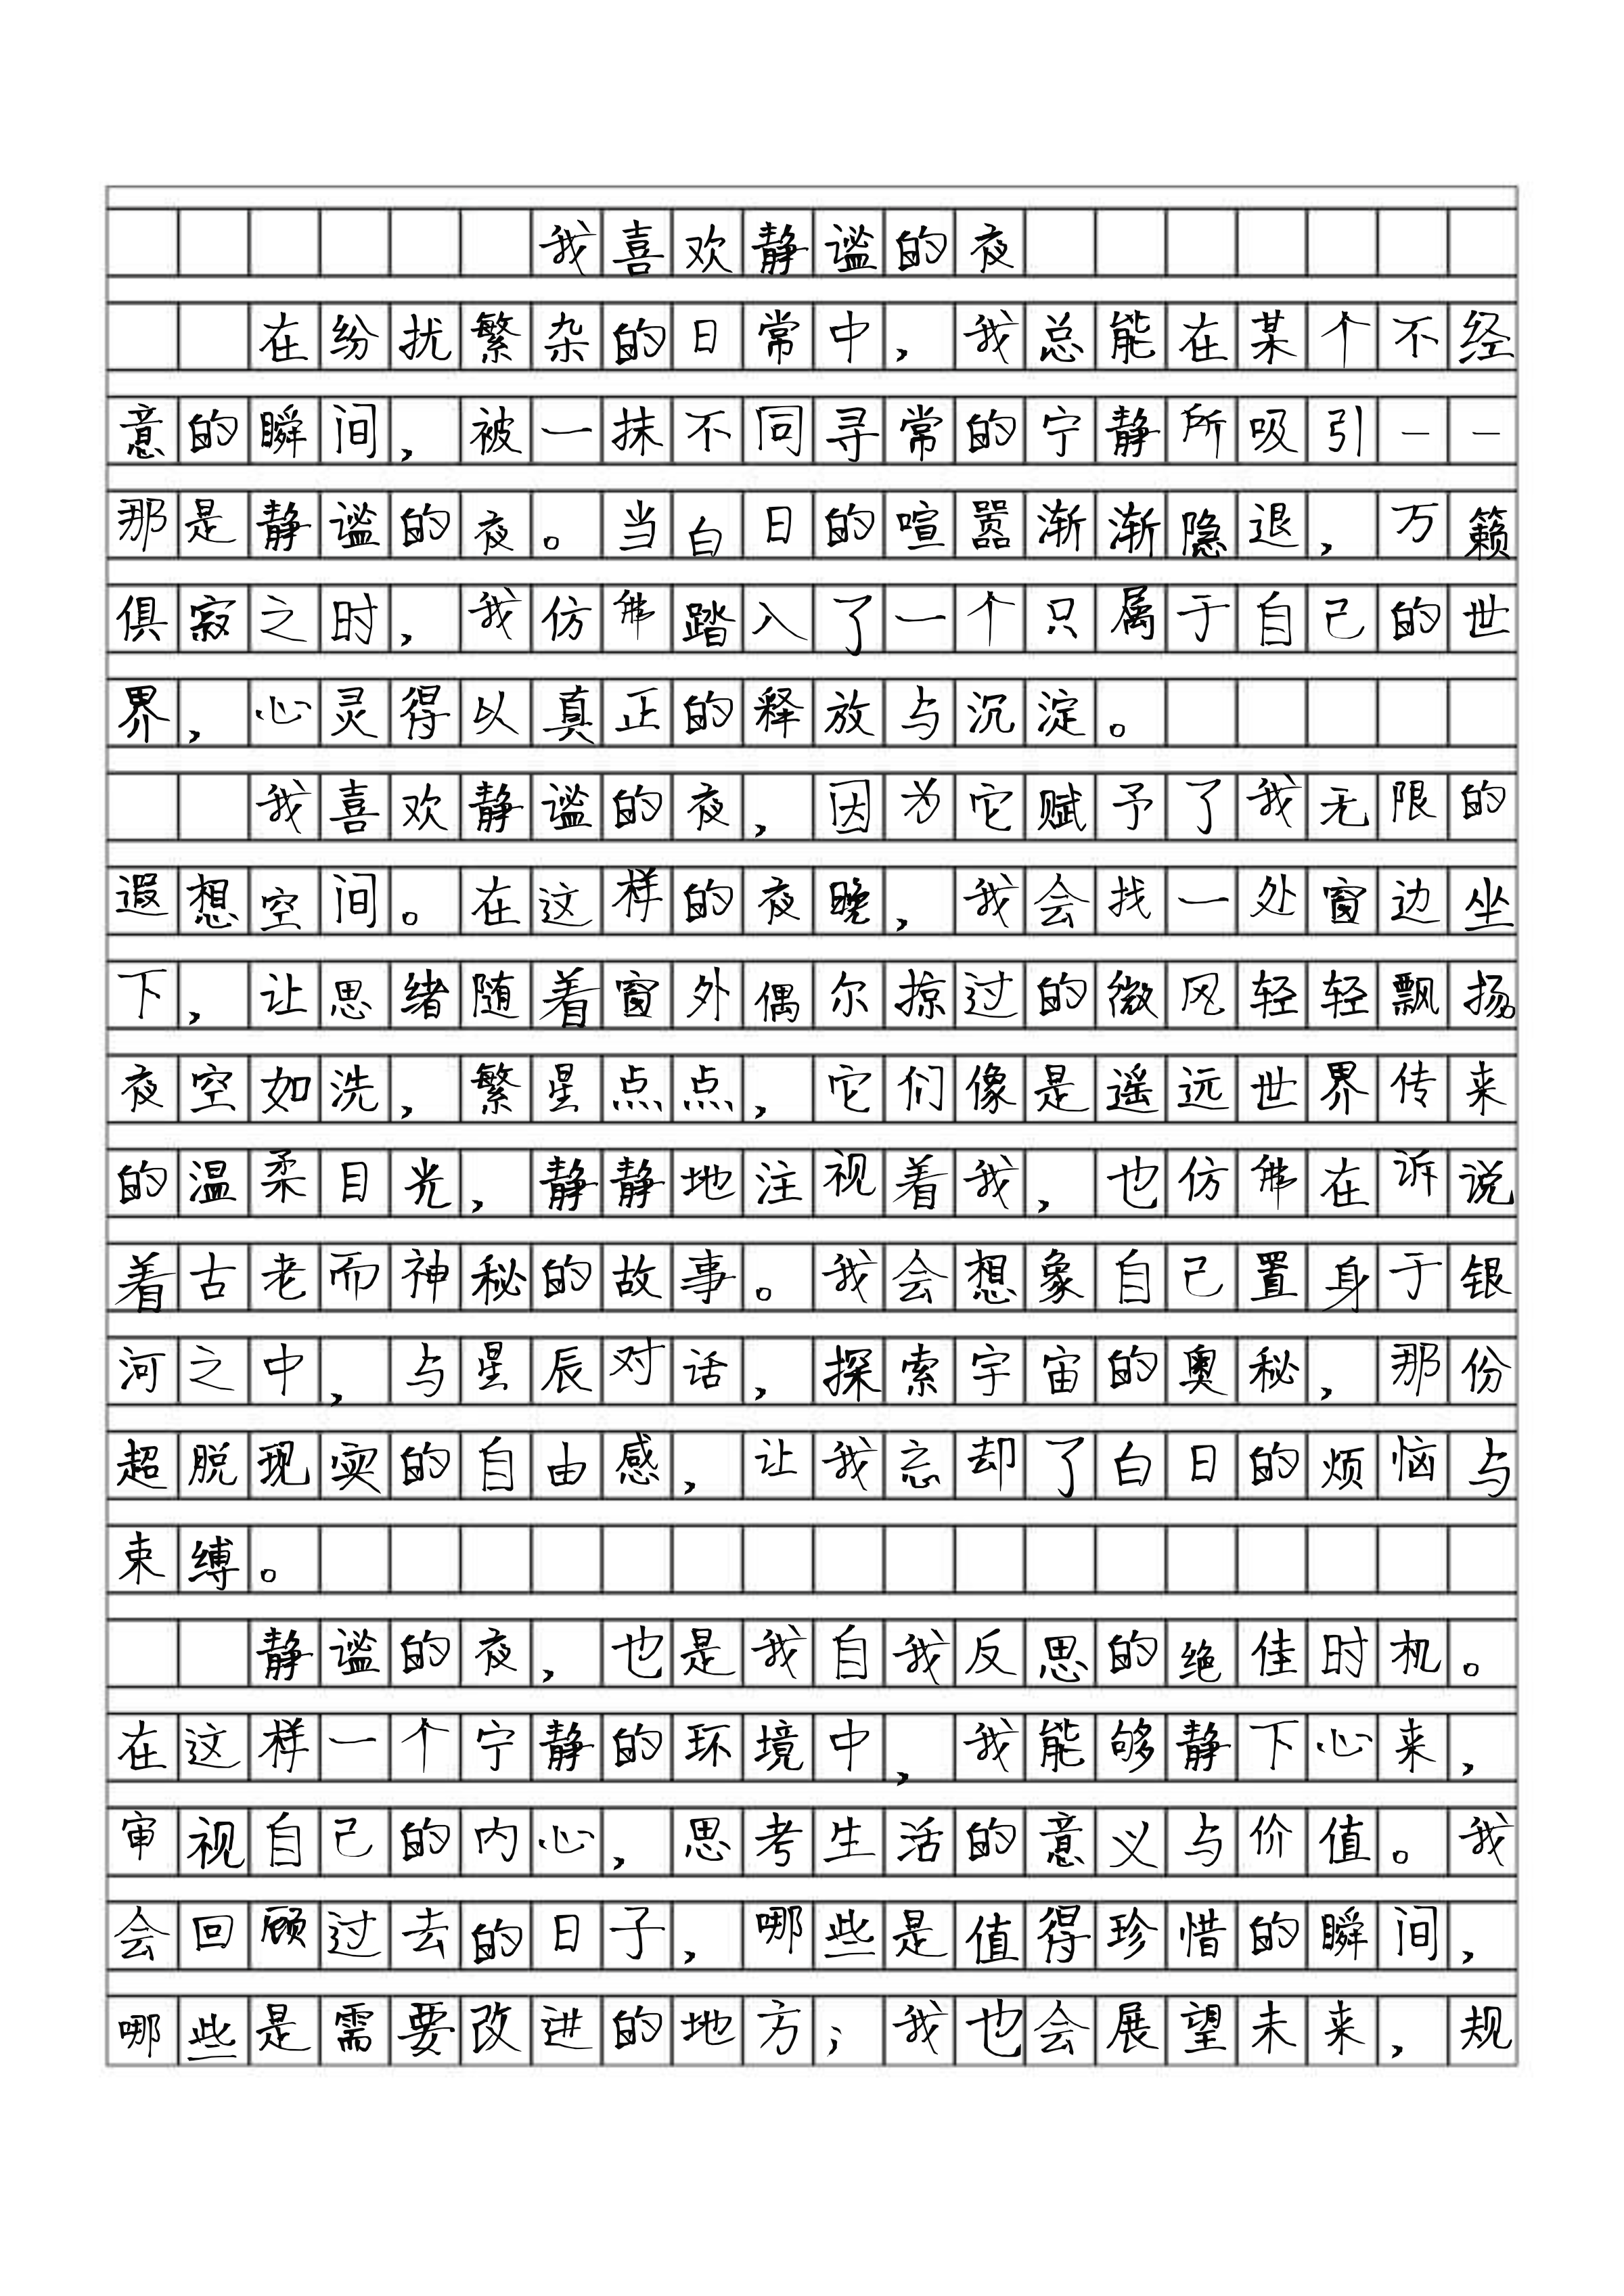 我喜欢静谧的夜
在纷扰繁杂的日常中，我总能在某个不经
意的瞬间，被一抹不同寻常的宁静所吸引——
那是静谧的夜。当白日的喧嚣渐渐隐退，万籁
俱寂之时，我仿佛踏入了一个只属于自己的世
界，心灵得以真正的释放与沉淀。
我喜欢静谧的夜，因为它赋予了我无限的
遐想空间。在这样的夜晚，我会找一处窗边坐
下，让思绪随着窗外偶尔掠过的微风轻轻飘扬。
夜空如洗，繁星点点，它们像是遥远世界传来
的温柔目光，静静地注视着我，也仿佛在诉说
着古老而神秘的故事。我会想象自己置身于银
河之中，与星辰对话，探索宇宙的奥秘，那份
超脱现实的自由感，让我忘却了白日的烦恼与
束缚。
静谧的夜，也是我自我反思的绝佳时机。
在这样一个宁静的环境中，我能够静下心来，
审视自己的内心，思考生活的意义与价值。我
会回顾过去的日子，哪些是值得珍惜的瞬间，
哪些是需要改进的地方；我也会展望未来，规